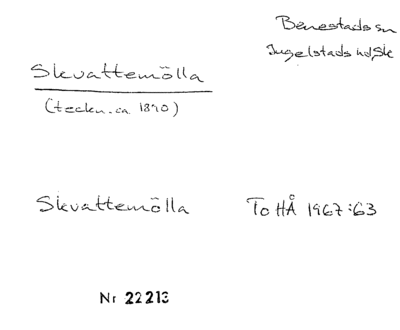 Benestads sn
Ingelstads hd, Sk
Skvattemölla
(teckn. ca 1890)
Skvattemölla ToHÅ 1967:63
Nr 22213